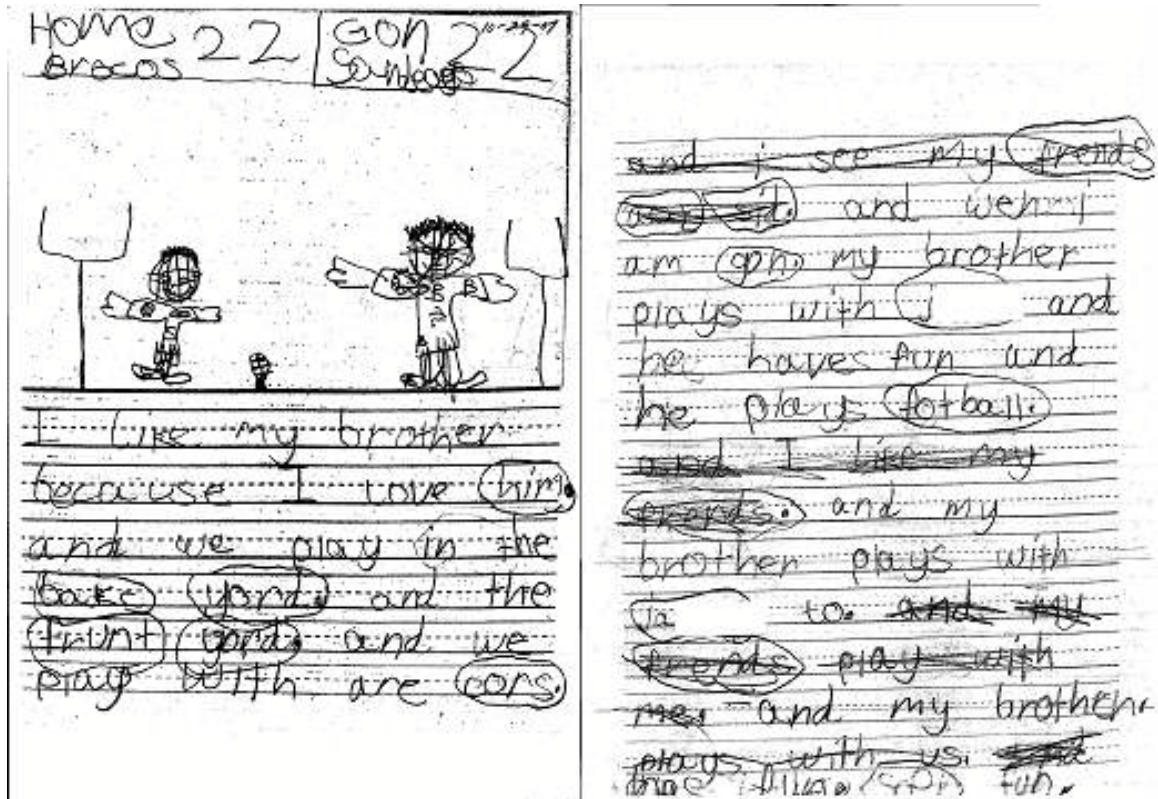 Home 22
Brocos
GON 22
10-29-07
Santiago
B B
I like my brother
because I love him.
and we play in the
bake yord. and the
frunt yord. and we
play with are cors.
and i see my frends
and weh i
am gon. my brother
plays with j and
he haves fun and
he plays fotball.
and I like my
frends. and my
brother plays with
to. and my
frends play with
me. and my brother.
plays with us. and
fun.